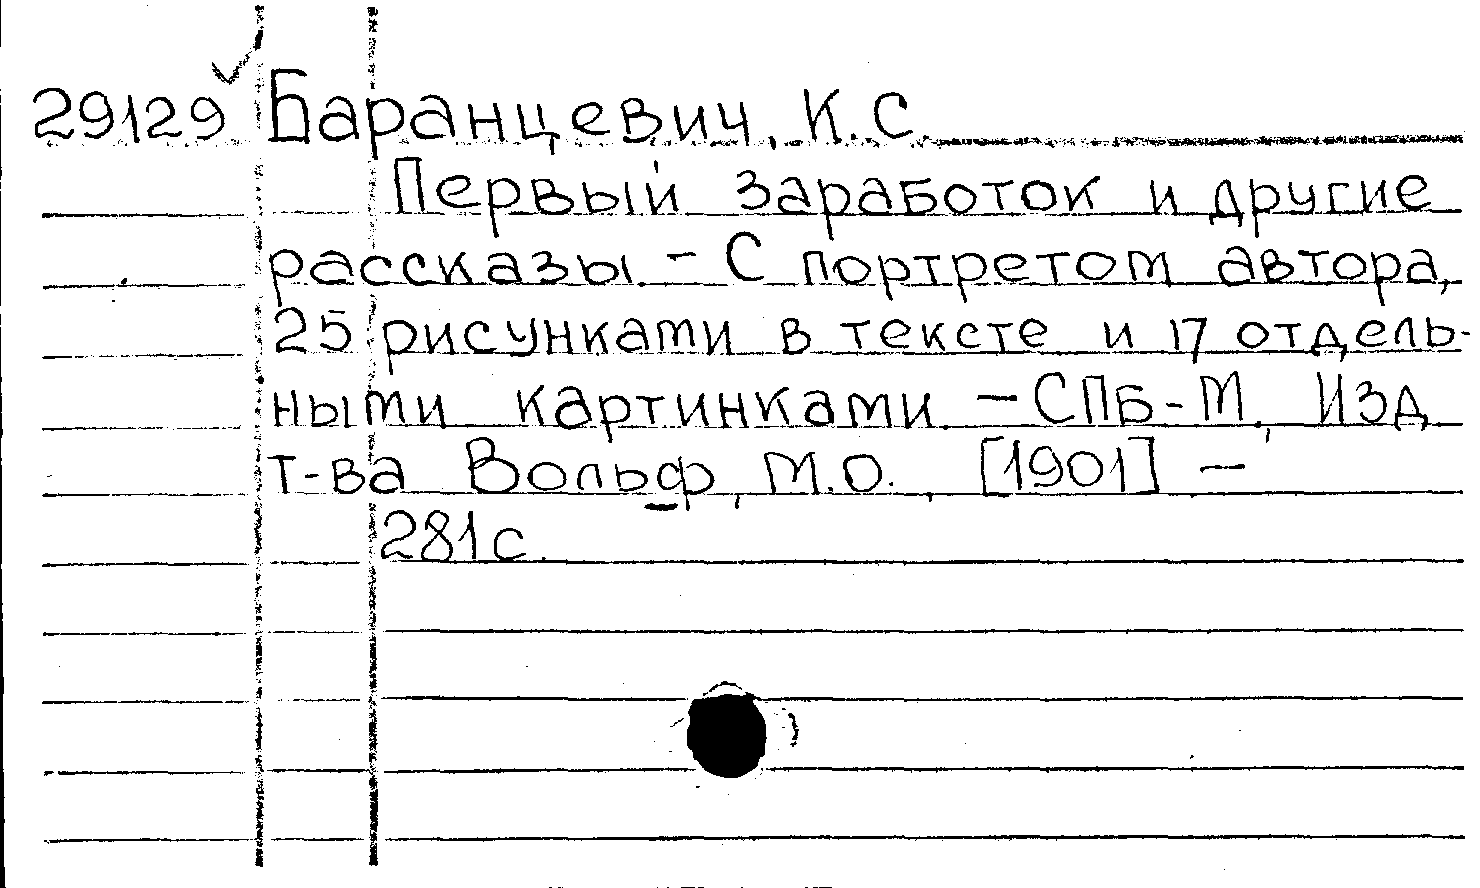 29129 Баранцевич, К.С.
Первый заработок и другие
рассказы. - С портретом автора,
25 рисунками в тексте и 17 отдель-
ными картинками. - СПБ-М, Изд.
т-ва Вольф, М.О., [1901] -
281с.